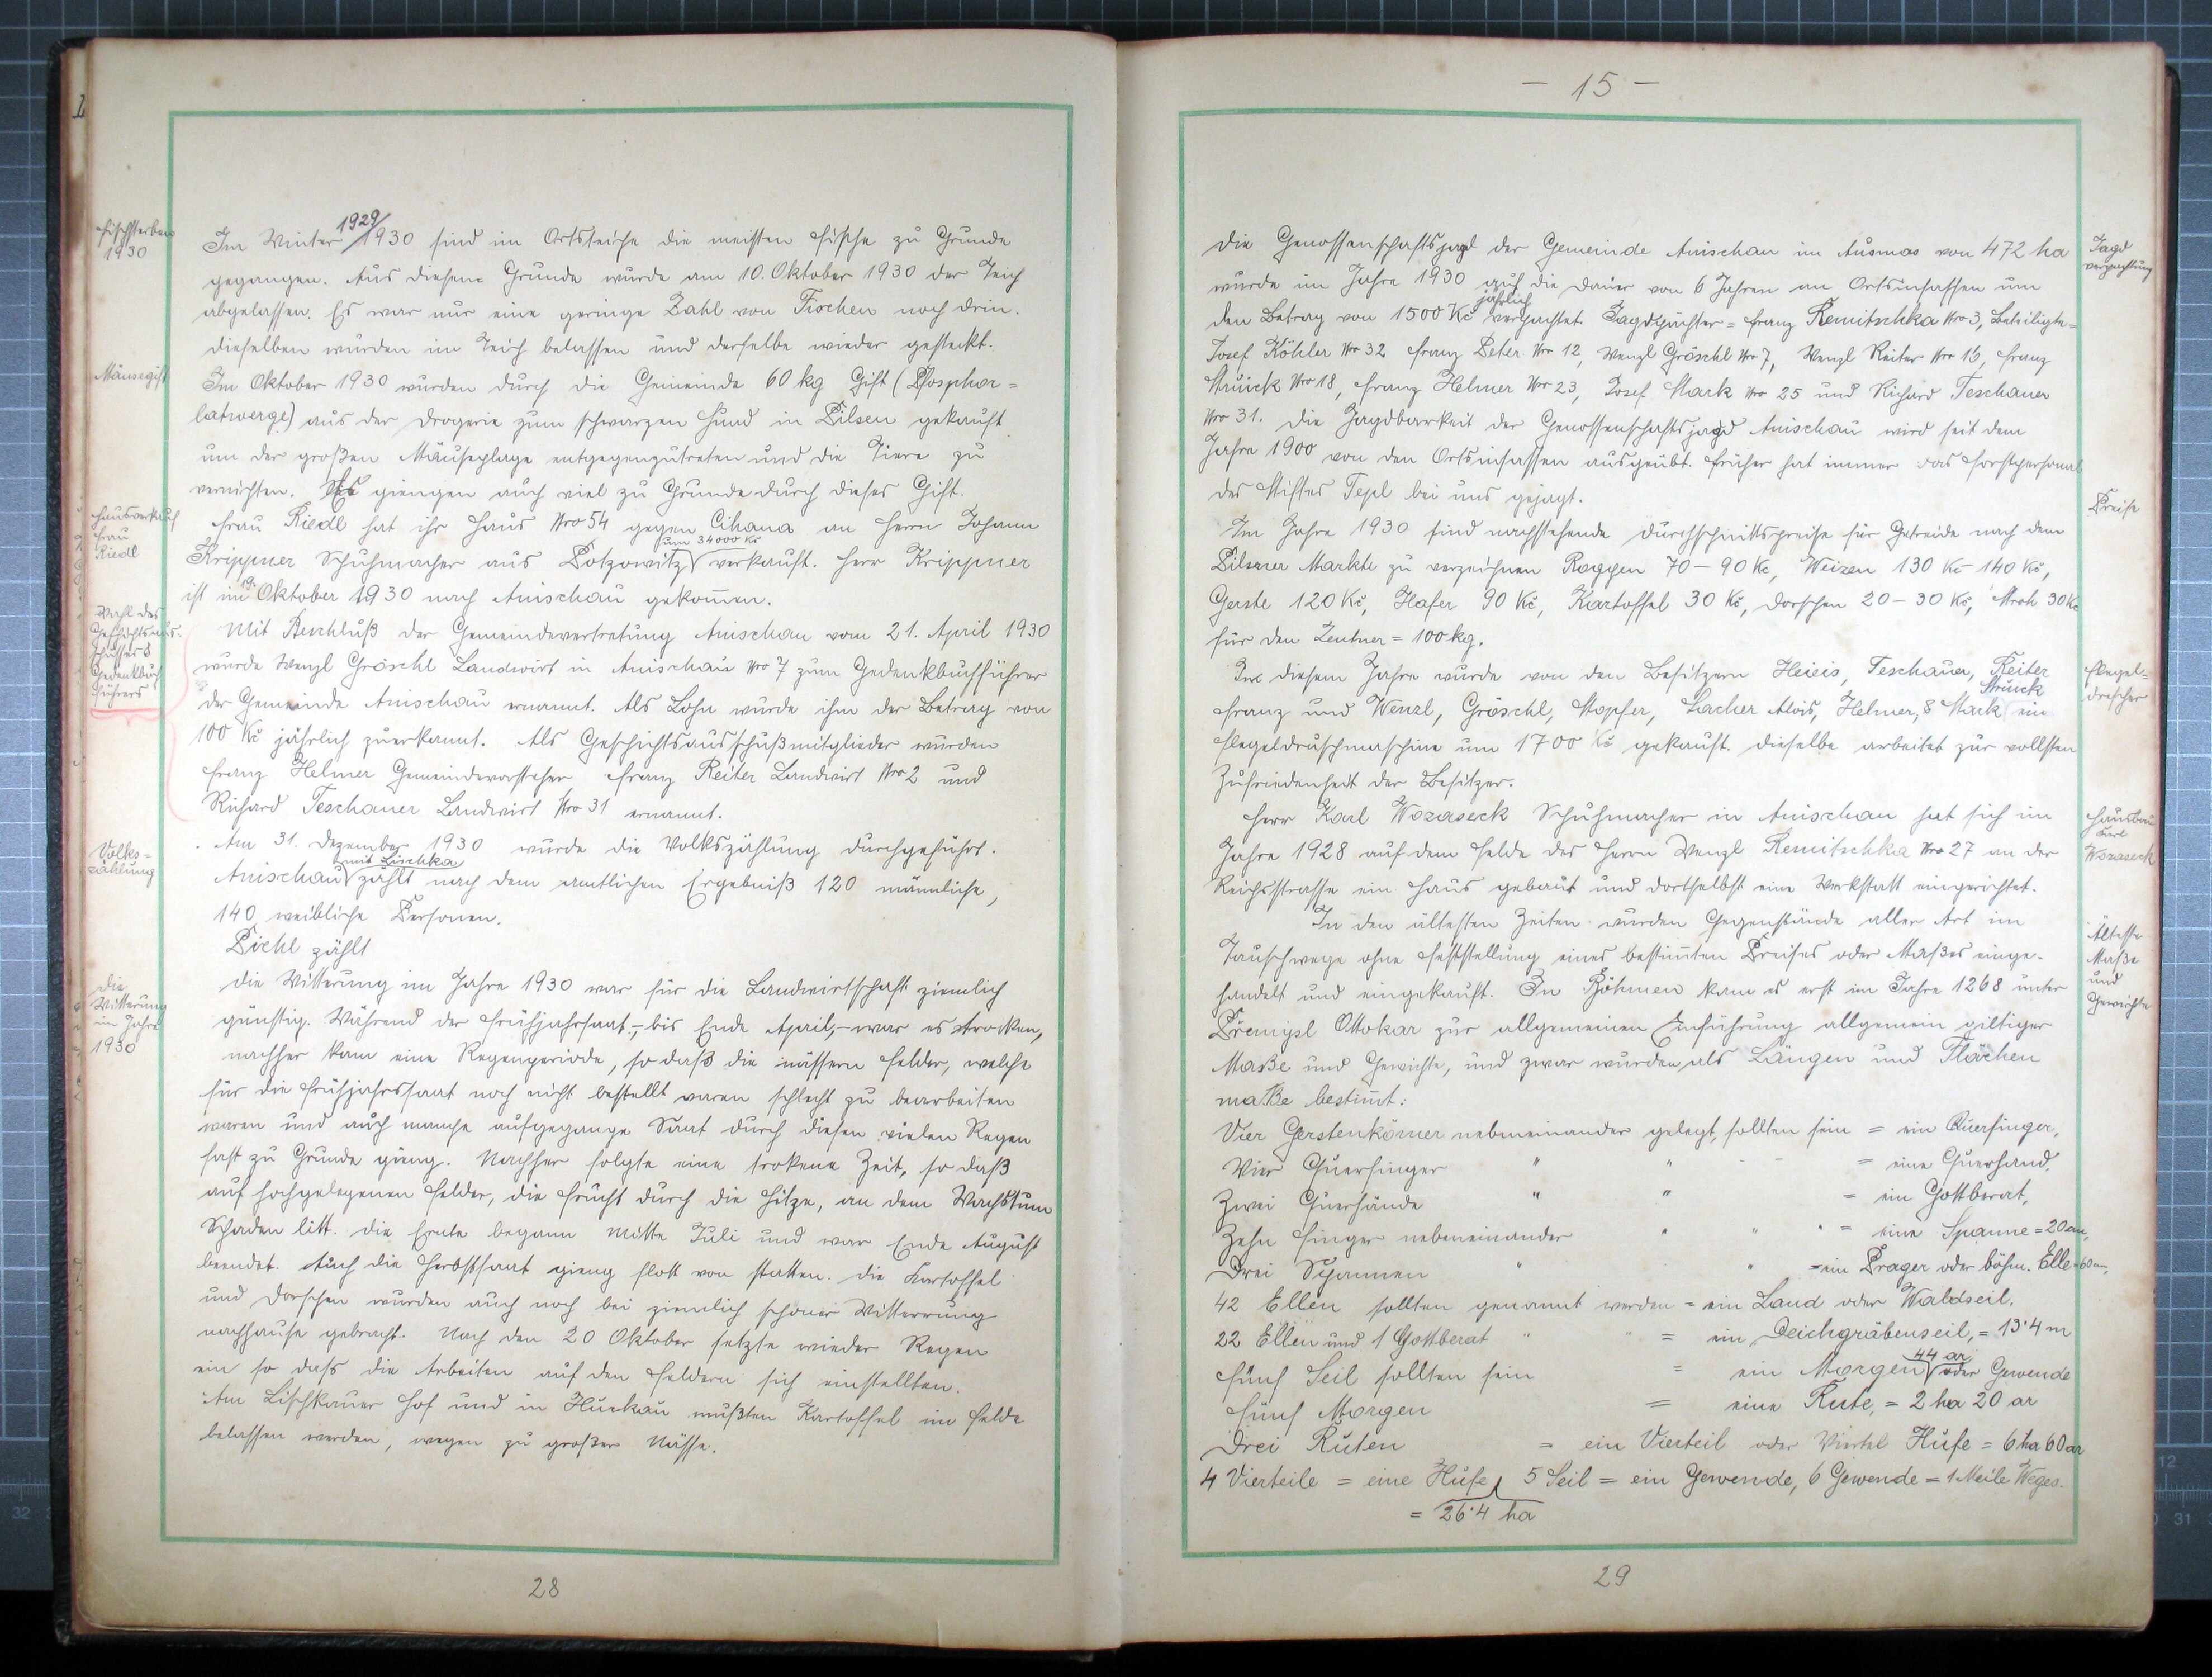 Fischsterben
1930
Im Winter 1929/1930 sind im Ortsteiche die meisten Fische zu Grunde
gegangen. Aus diesem Grunde wurde am 10. Oktober 1930 der Teich
abgelassen. Es war nur eine geringe Zahl von Fischen noch drin.
dieselben wurden im Teich belassen und derselbe wieder gesteckt.
Mäusegift
Im Oktober 1930 wurden durch die Gemeinde 60 kg Gift (Phosphor=
latwerge) aus der Drogerie zum schwarzen Hund in Pilsen gekauft
um der großen Mäuseplage entgegenzutreten und die Tiere zu
vernichten. Es giengen auch viel zu Grunde durch dieses Gift.
Hausverkauf
Frau
Riedl
Frau Riedl hat ihr Haus Nro 54 gegen Cihana an Herrn Johann
Krippner Schuhmacher aus Potzowitz um 34000 Kč verkauft. Herr Krippner
ist im 19. Oktober 1930 nach Anischau gekom̄en.
Wahl des
Geschichtsaus-
schusses
Gedenkbuch
führers
Mit Beschluß der Gemeindevertretung Anischau vom 21. April 1930
wurde Wenzl Gröschl Landwirt in Anischau Nro 7 zum Gedenkbuchführer
der Gemeinde Anischau ernannt. Als Lohn wurde ihm der Betrag von
100 Kč jährlich zuerkannt. Als Geschichtsausschußmitglieder wurden
Franz Helmer Gemeindevorsteher Franz Reiter Landwirt Nro 2 und
Richard Teschauer Landwirt Nro 31 ernannt.
Volks=
zählung
Am 31. Dezember 1930 wurde die Volkszählung durchgeführt.
Anischau mit Lischka zählt nach dem amtlichen Ergebniß 120 männliche,
140 weibliche Personen.
Pichl zählt
die
Witterung
im Jahre
1930
die Witterung im Jahre 1930 war für die Landwirtschaft ziemlich
günstig. Während der Frühjahrsaat,- bis Ende April,- war es trocken,
nachher kam eine Regenperiode, so daß die nässern Felder, welche
für die Frühjahrssaat noch nicht bestellt waren schlecht zu bearbeiten
waren und auch manche aufgegange Saat durch diesen vielen Regen
fast zu Grunde gieng. Nachher folgte eine trokene Zeit, so daß
auf hochgelegenen Felder, die Frucht durch die Hitze, an dem Wachstum
Schaden litt. die Ernte begann Mitte Juli und war Ende August
beendet. Auch die Herbstsaat gieng flott von statten. die Kartoffel
und Dorschen wurden auch noch bei ziemlich schöner Witterrung
nachhause gebracht. Nach den 20 Oktober setzte wieder Regen
ein so daß die Arbeiten auf den Feldern sich einstellten.
Am Lischkauer Hof und in Hurkau mußten Kartoffel im Felde
belassen werden, wegen zu großer Nässe.
28
- 15 -
Jagd
verpachtung
die Genossenschaftsjagd der Gemeinde Anischau im Ausmas von 472 ha
wurde im Jahre 1930 auf die Dauer von 6 Jahren an Ortsinsassen um
den Betrag von 1500 Kč jährlich verpachtet. Jagdpächter = Franz Remitschka Nro 3, Beteiligte=
Josef Köhler Nro 32 Franz Peter Nro 12, Wenzl Gröschl Nro 7, Wenzl Reiter Nro 16, Franz
Struick Nro 18, Franz Helmer Nro 23, Josef Stark Nro 25 und Richard Teschauer
Nro 31. die Jagdbarkeit der Genossenschaftsjagd Anischau wird seit dem
Jahre 1900 von den Ortsinsassen ausgeübt. Früher hat immer das Forstpersonal
des Stiftes Tepl bei uns gejagt.
Preise
Im Jahre 1930 sind nachstehende Durchschnittspreise für Getreide nach dem
Pilsner Markte zu verzeichnen Roggen 70 - 90 Kč, Weizen 130 Kč 140 Kč,
Gerste 120 Kč, Hafer 90 Kč, Kartoffel 30 Kč, Dorschen 20 - 30 Kč, Stroh 30 Kč
für den Zentner = 100 kg.
Flegel=
drescher
In diesem Jahre wurde von den Besitzern Heieis, Teschauer, Reiter
Franz und Wenzl, Gröschl, Stopfer, Lacher Alois, Helmer, & Stark Struick ein
Flegeldruschmaschine um 1700 Kč gekauft. dieselbe arbeitet zur vollsten
Zufriedenheit der Besitzer.
Hausbau
Karl
Wozaseck
Herr Karl Wozaseck Schuhmacher in Anischau hat sich im
Jahre 1928 auf dem Felde des Herrn Wenzl Remitschka Nro 27 an der
Reichsstrasse ein Haus gebaut und dortselbst eine Werkstatt eingerichtet.
Älteste
Maße
und
Gewichte
In den ältesten Zeiten wurden Gegenstände aller Art im
Tauschwege ohne Feststellung eines bestim̄ten Preises oder Maßes einge-
handelt und eingekauft. In Böhmen kam es erst im Jahre 1268 unter
Přemisl Ottokar zur allgemeinen Einführung allgemein giltiger
Maße und Gewichte, und zwar wurden als Längen und Flächen
maße bestim̄t:
Vier Gerstenkörner nebeneinander gelegt, sollten sein = ein Querfinger,
Vier Querfinger " " = eine Querhand,
Zwei Querhände " " = ein Gottberat,
Zehn Finger nebeneinander " " " = eine Spanne = 20 cm,
Drei Spannen " " = ein Prager oder böhm. Elle = 60 cm,
42 Ellen sollten genannt werden = ein Land oder Waldseil.
22 Ellen und 1 Gottberat " " = ein Deichgräbenseil, = 13·4 m
Fünf Seil sollten sein = ein Morgen 44 ar oder Gewende
Fünf Morgen = eine Rute, = 2 ha 20 ar
Drei Ruten = ein Vierteil oder Viertel Hufe = 6 ha 60 ar
4 Vierteile = eine Hufe 5 Seil = ein Gewende, 6 Gewende = 1 Meile Weges.
= 26·4 ha
29